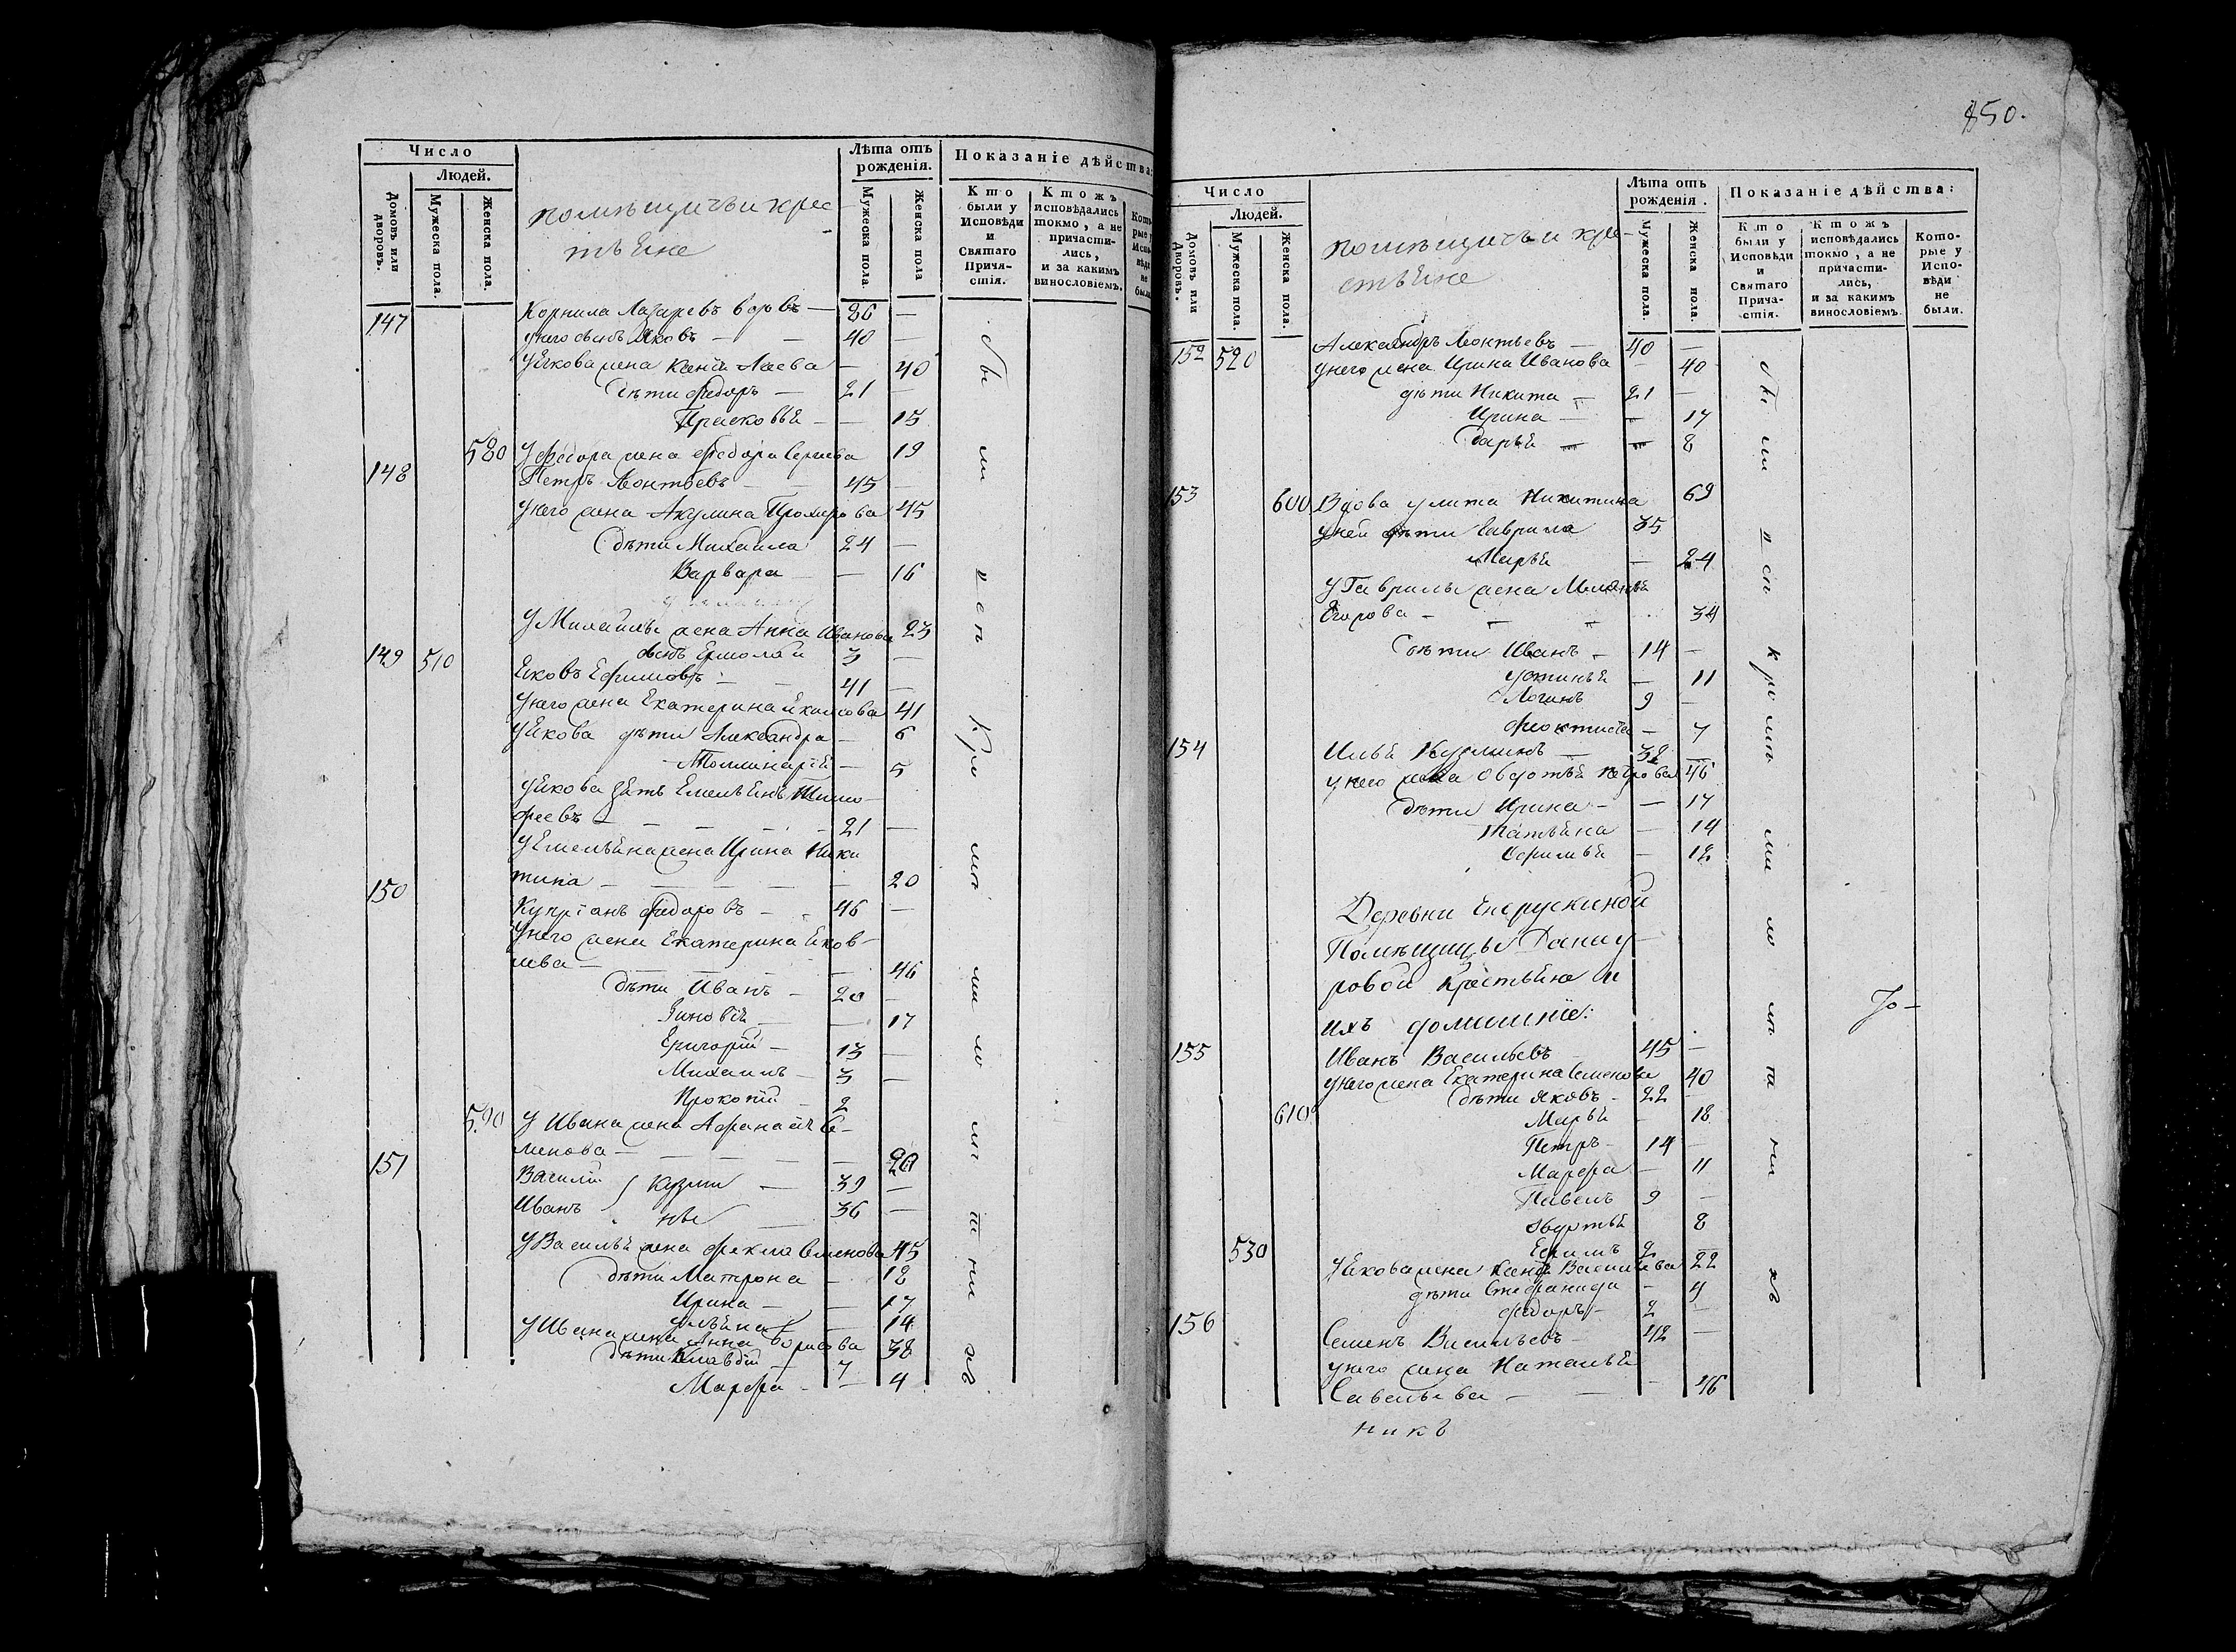 850.
Число
Людей.
Домовъ или дворовъ.
Мужеска пола.
Женска пола.
помѣщичьи крес
тьяне
Лѣта отъ рожденія.
Мужеска пола.
Женска пола
Показаніе дѣйства:
Кто были у Исповѣди и Святаго Причастія.
Ктожъ исповѣдались токмо, а не причастились, и за какимъ винословіемъ.
147 Корнила Лазаревъ вдовъ — 86 —
у него сынъ Яковъ — — 40 —
У Якова жена Ксенія — 40
дѣти Федоръ — 21 —
Прасковья — — 15
580 У Федора жена Федора Сергѣева 19
148 Петръ Леонтьевъ — — 45 —
У него жена Акулина 45
дѣти Михаила 24 —
Варвара — — 16
У Михайлы жена Анна Иванова 23
сынъ Ермолай 3 —
149 510 Яковъ Ефимовъ — — 41 —
У него жена Екатерина 41
У Якова дѣти Александра — 6
5
У Якова зять Емельянъ Тимо-
феевъ — — — — 21 —
У Емельяна жена Ирина Ники
тина — — — — — 20
150 Купріанъ Федоровъ — 46 —
У него жена Екатерина Яков-
лева — — — — 46
дѣти Иванъ — 20 —
Зиновія — — 17
Григорій — 13 —
Михаилъ — 3 —
Прокопій — 2
590 У Ивана жена Афанасія Се-
менова — — — — — 20
151 Василій } Кузми — 39 —
Иванъ } ны — 36 —
У Василья жена Фекла Семенова 45
дѣти Матрона — 18
Ирина — — 17
Ульяна — 14
У Ивана жена Анна Борисова 38
дѣти Клавдій — 7
Марфа — — 4
бы
ли
у
сп
кро
мѣ
ми
ло
лѣ
т
ни
хъ
Число
Людей.
Домовъ или Дворовъ.
Мужеска пола.
Женска пола.
помѣщичьи кре-
стьяне
Лѣта отъ рожденія.
Мужеска пола.
Женска пола.
Показаніе дѣйства:
Кто были у Исповѣди и Святаго Причастія.
Ктожъ исповѣдались токмо, а не причастились, и за какимъ винословіемъ.
Которые у Исповѣди не были.
152 520 Александръ Леонтьевъ — 40 —
У него жена Ирина Иванова — 40
дѣти Никита — 21 —
Ирина — — 17
Дарья — — 8
153 600 Вдова Улита Никитина 69
У ней дѣти Гаврила 35
Марья — 24
У Гаврилы жена Меланья
Егорова — — — 34
дѣти Иванъ — 14 —
Устинья — 11
Логинъ 9 —
Феоктиста — 7
154 Илья Кузминъ — 38 —
У него жена Овдотья Петрова 46
дѣти Ирина — — 17
Татьяна — 14
— 12
Деревни
Помѣщицы
Крестьяне и
ихъ домашніе:
155 Иванъ Васильевъ 45 —
У него жена Екатерина Семенова 40
дѣти Яковъ — 22 —
610 Марья — 18
Петръ — 14 —
Марфа — 11
Павелъ 9 —
Овдотья 8
530 Ефимъ 2 —
У Якова жена Ксенія Васильева 22
дѣти Стефанида — 4
Федоръ — 2 —
156 Семенъ Васильевъ — 42 —
У него жена Наталья
Савельева — — — 46
никъ
бы
ли
у
сп
кро
мѣ
ми
ло
лѣ
т
ни
хъ